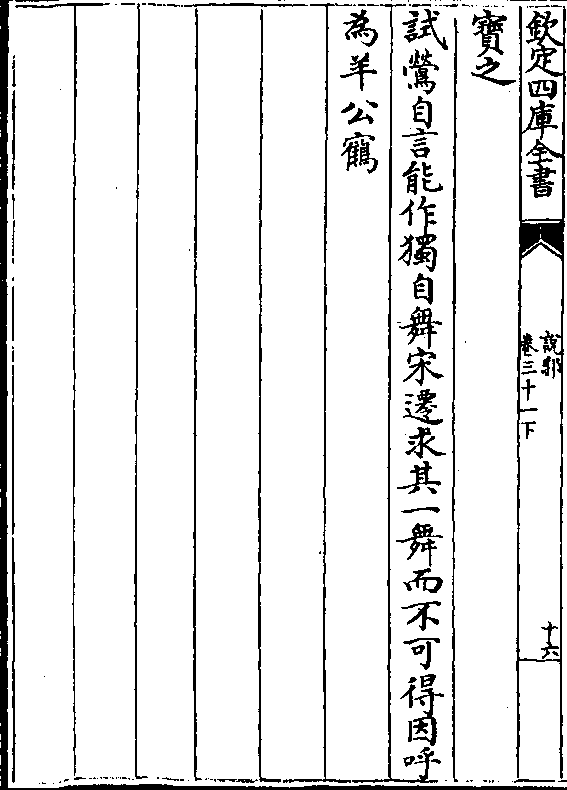 欽定四庫全書
說郛
卷三十一下
十六
寶之
試鶯自言能作獨自舞宋遷求其一舞而不可得因呼
為羊公鶴